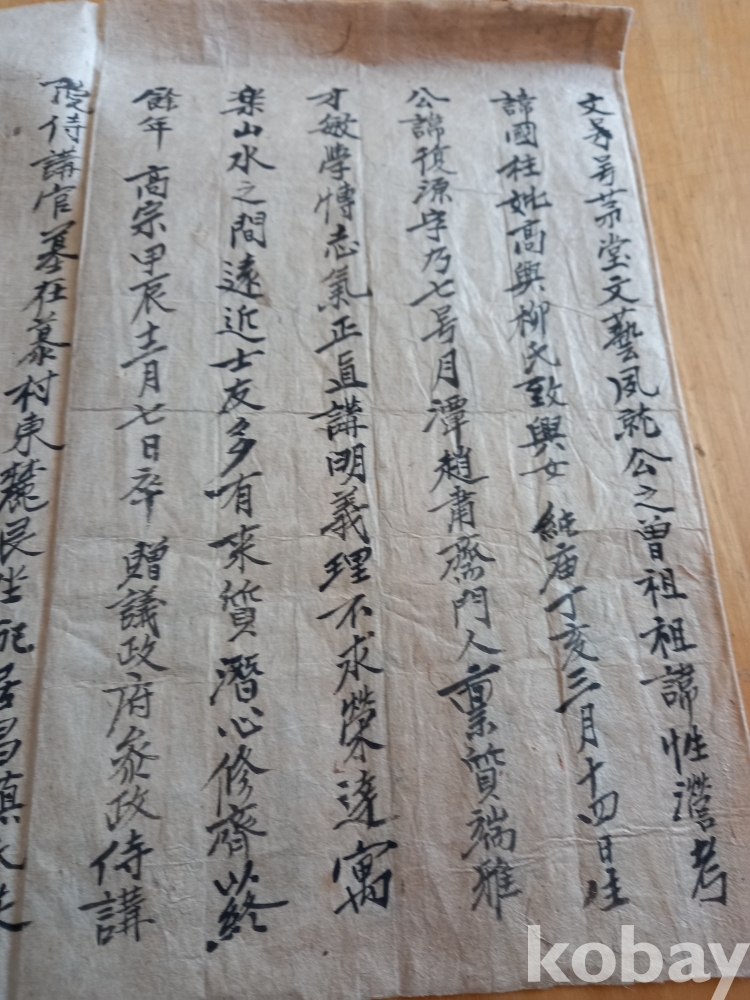 文芳号茅堂文藝夙就公之曾祖祖諱性澹考
諱國柱妣高興柳氏致興女 純庙丁亥三月十四日生
公諱復源字乃七号月潭趙肅齋門人稟質端雅
才敏學博志氣正直講明義理不求榮達寓
楽山水之間遠近士友多有來質潛心修齋以終
餘年 高宗甲辰十二月七日卒 贈議政府参政侍講
院侍講官墓在墓村東麓艮坐 居昌慎氏
kobay